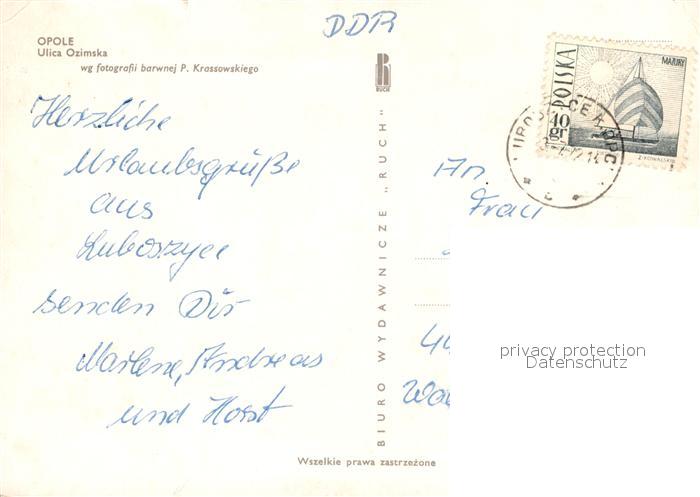 DDR
OPOLE
Ulica Ozimska
wg fotografii barwnej P. Krassowskiego
RUCH
Herzliche
Urlaubsgrüße
aus
Luboszyce
senden Dir
Marlene, Andreas
und Horst
BIURO WYDAWNICZE „RUCH"
Wszelkie prawa zastrzeżone
POLSKA
MAZURY
40 gr
An
Frau
44
privacy protection
Datenschutz